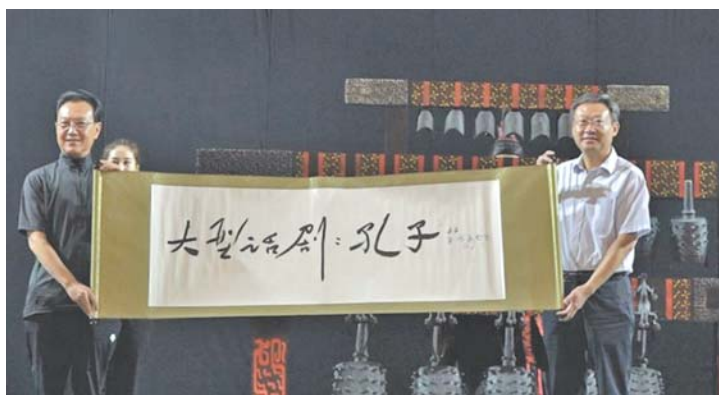 大型话剧：孔子